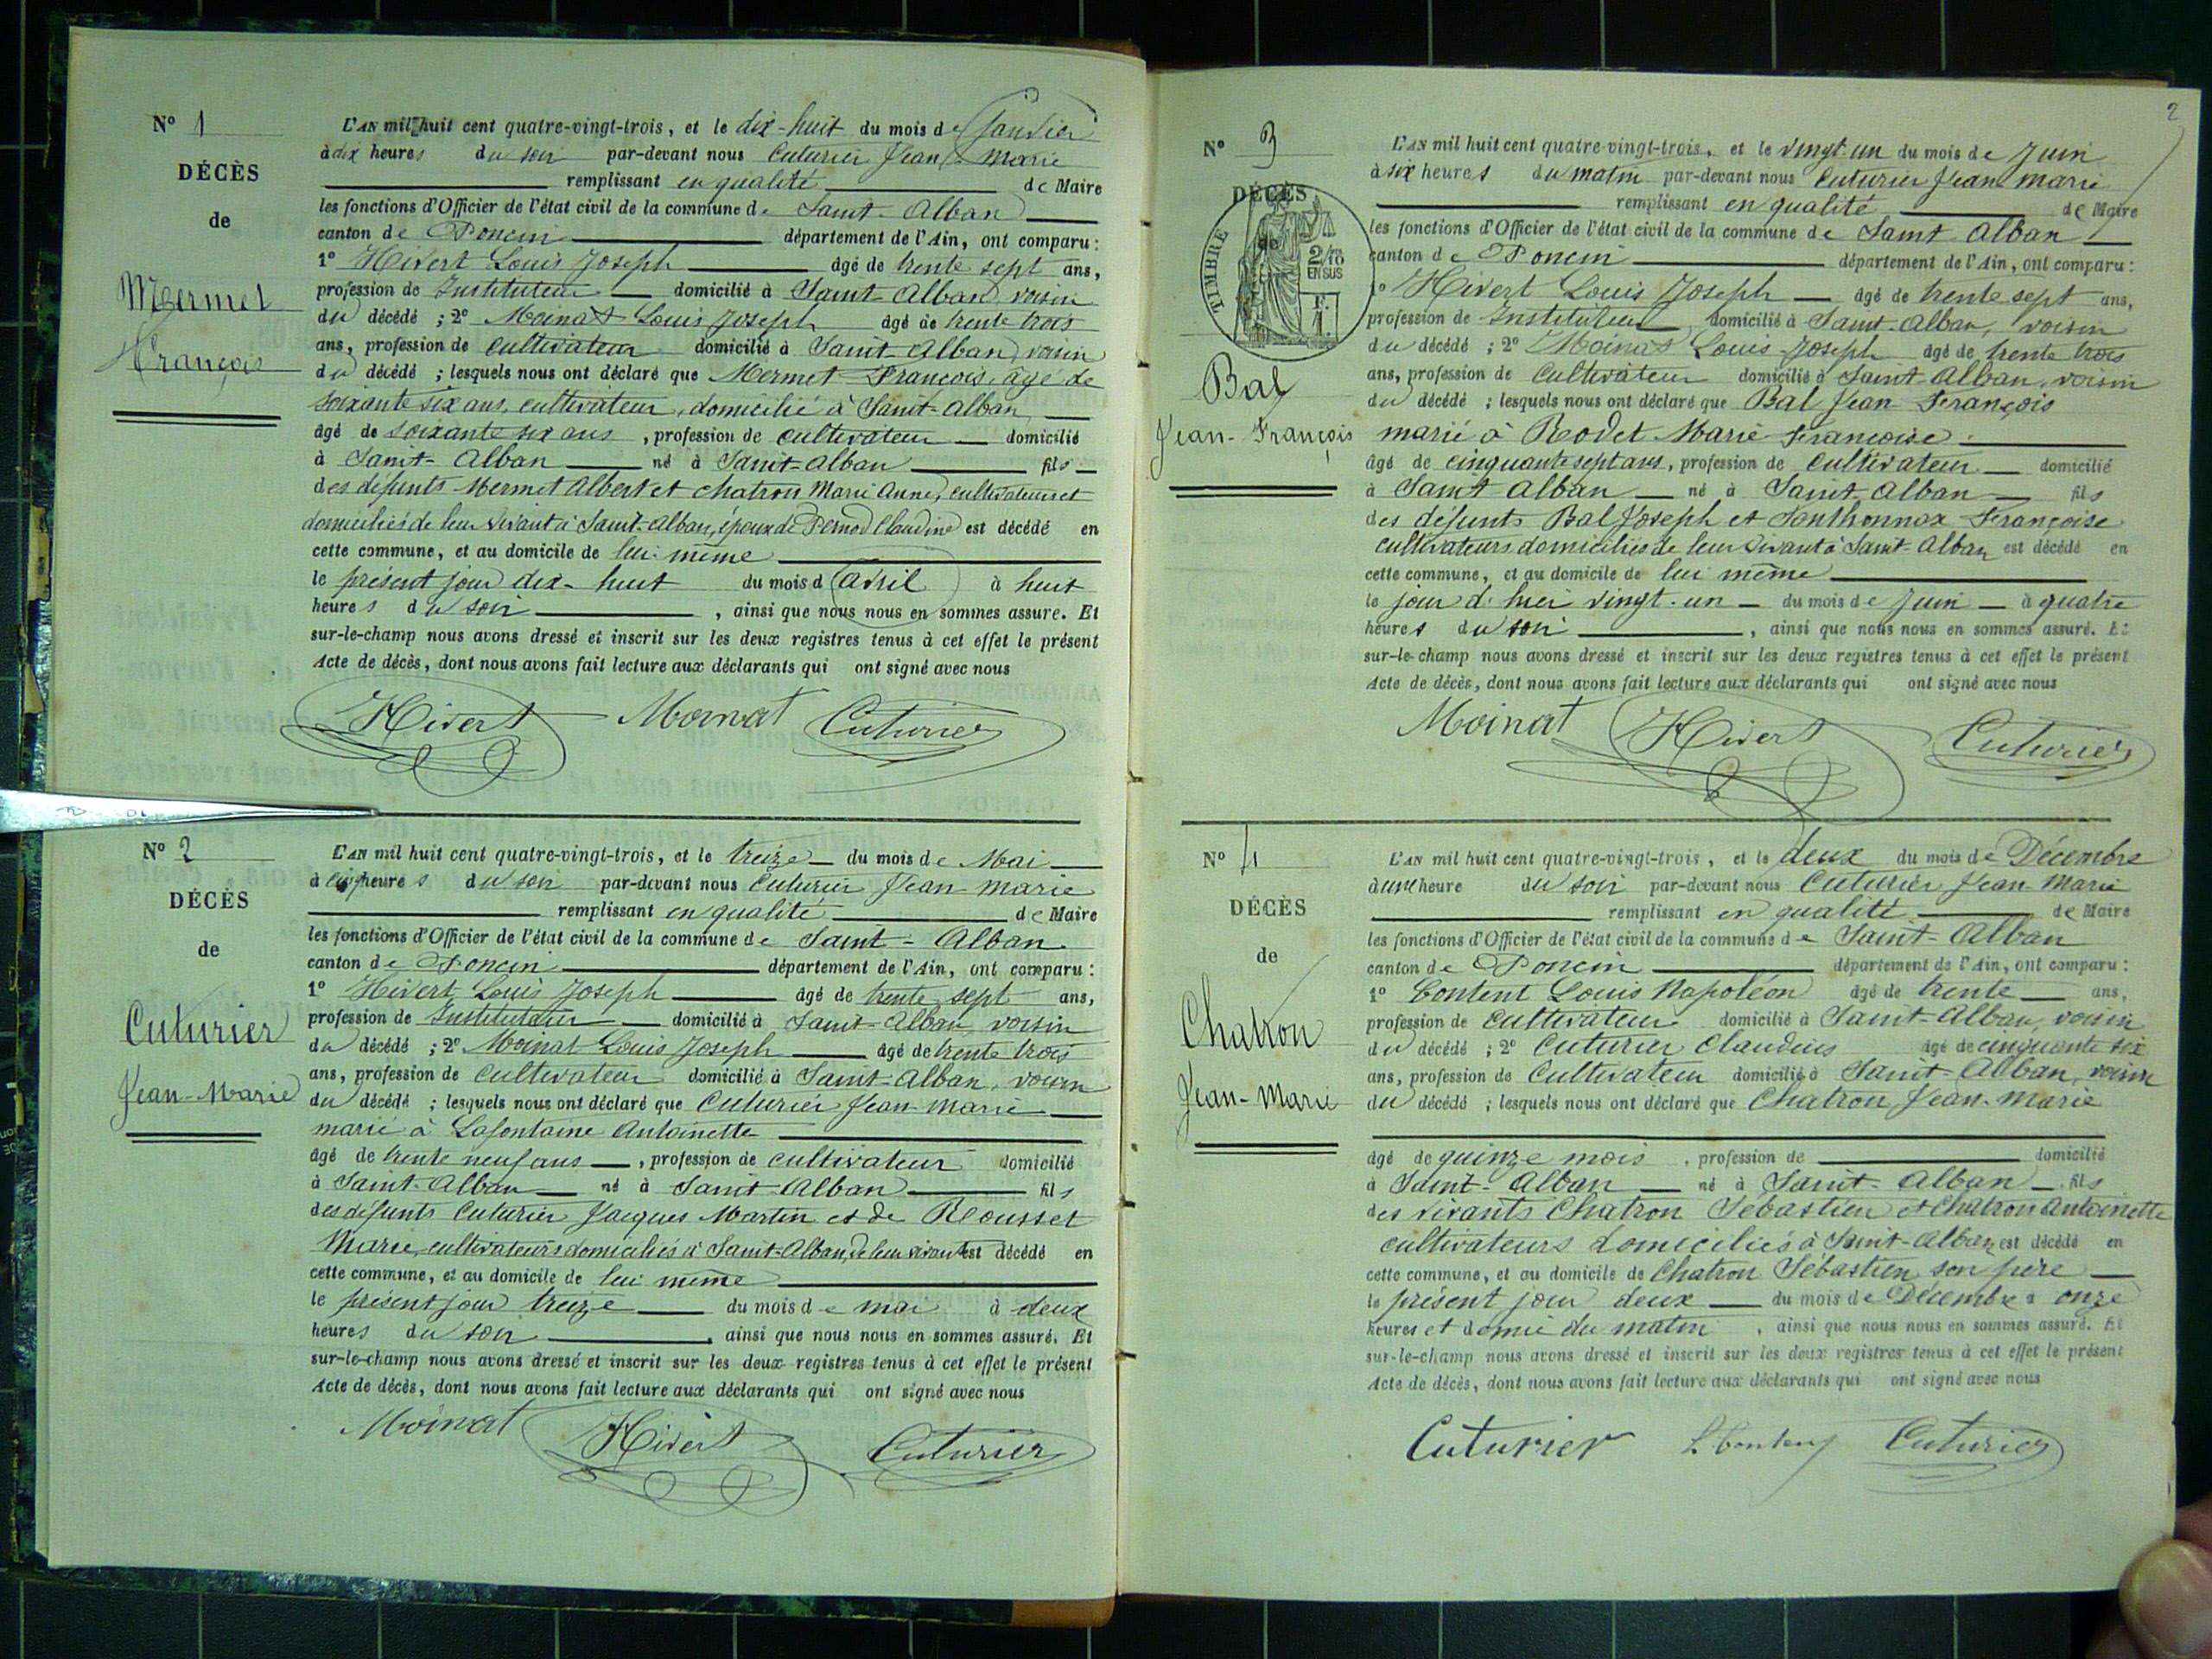 Nº 1
DÉCÈS
de
Mermet
François
L'AN mil huit cent quatre-vingt-trois, et le dix-huit du mois de Janvier
à dix heures du soir par-devant nous Cuturier Jean Marie
remplissant en qualité de Maire
les fonctions d'Officier de l'état civil de la commune de Saint-Alban
canton de Poncin département de l'Ain, ont comparu :
1º Hivert Louis Joseph âgé de trente sept ans,
profession de Instituteur domicilié à Saint-Alban, voisin
du décédé ; 2º Moinat Louis Joseph âgé de trente trois
ans, profession de cultivateur domicilié à Saint-Alban, voisin
du décédé ; lesquels nous ont déclaré que Mermet François, âgé de
soixante six ans, cultivateur, domicilié à Saint-Alban
âgé de soixante six ans, profession de cultivateur domicilié
à Saint-Alban né à Saint-Alban fils
des défunts Mermet Albert et Chatron Marie Anne, cultivateurs et
domiciliés de leur vivant à Saint-Alban, époux de Pernod Claudine est décédé en
cette commune, et au domicile de lui même
le présent jour dix-huit du mois d avril à huit
heures du soir, ainsi que nous nous en sommes assuré. Et
sur-le-champ nous avons dressé et inscrit sur les deux registres tenus à cet effet le présent
Acte de décès, dont nous avons fait lecture aux déclarants qui ont signé avec nous
Hivert Moinat Cuturier
Nº 2
DÉCÈS
de
Cuturier
Jean-Marie
L'AN mil huit cent quatre-vingt-trois, et le treize du mois de Mai
à cinq heures du soir par-devant nous Cuturier Jean-Marie
remplissant en qualité de Maire
les fonctions d'Officier de l'état civil de la commune de Saint-Alban
canton de Poncin département de l'Ain, ont comparu :
1º Hivert Louis Joseph âgé de trente sept ans,
profession de Instituteur domicilié à Saint-Alban, voisin
du décédé ; 2º Moinat Louis Joseph âgé de trente trois
ans, profession de cultivateur domicilié à Saint-Alban, voisin
du décédé ; lesquels nous ont déclaré que Cuturier Jean-Marie
marié à Lafontaine Antoinette
âgé de trente neuf ans, profession de cultivateur domicilié
à Saint-Alban né à Saint-Alban fils
des défunts Cuturier Jacques Martin et de Rousset
Marie, cultivateurs domiciliés à Saint-Alban, de leur vivant est décédé en
cette commune, et au domicile de lui même
le présent jour treize du mois de mai à deux
heures du soir, ainsi que nous nous en sommes assuré. Et
sur-le-champ nous avons dressé et inscrit sur les deux registres tenus à cet effet le présent
Acte de décès, dont nous avons fait lecture aux déclarants qui ont signé avec nous
Moinat Hivert Cuturier
2
Nº 3
DÉCÈS
TIMBRE
2/10
EN SUS
F.
1.
Bal
Jean-François
L'AN mil huit cent quatre-vingt-trois, et le vingt-un du mois de Juin
à six heures du matin par-devant nous Cuturier Jean-Marie
remplissant en qualité de Maire
les fonctions d'Officier de l'état civil de la commune de Saint-Alban
canton de Poncin département de l'Ain, ont comparu :
1º Hivert Louis Joseph âgé de trente sept ans,
profession de Instituteur, domicilié à Saint-Alban, voisin
du décédé ; 2º Moinat Louis Joseph âgé de trente trois
ans, profession de cultivateur domicilié à Saint-Alban, voisin
du décédé ; lesquels nous ont déclaré que Bal Jean François
marié à Rodet Marie Françoise
âgé de cinquante sept ans, profession de cultivateur domicilié
à Saint-Alban né à Saint-Alban fils
des défunts Bal Joseph et Santhonnax Françoise
cultivateurs domiciliés de leur vivant à Saint-Alban est décédé en
cette commune, et au domicile de lui même
le jour d'hier vingt-un du mois de Juin à quatre
heures du soir, ainsi que nous nous en sommes assuré. Et
sur-le-champ nous avons dressé et inscrit sur les deux registres tenus à cet effet le présent
Acte de décès, dont nous avons fait lecture aux déclarants qui ont signé avec nous
Moinat Hivert Cuturier
Nº 4
DÉCÈS
de
Chatron
Jean-Marie
L'AN mil huit cent quatre-vingt-trois, et le deux du mois de Décembre
à une heure du soir par-devant nous Cuturier Jean-Marie
remplissant en qualité de Maire
les fonctions d'Officier de l'état civil de la commune de Saint-Alban
canton de Poncin département de l'Ain, ont comparu :
1º Content Louis Napoléon âgé de trente ans,
profession de cultivateur domicilié à Saint-Alban, voisin
du décédé ; 2º Cuturier Claudius âgé de cinquante six
ans, profession de cultivateur domicilié à Saint-Alban, voisin
du décédé ; lesquels nous ont déclaré que Chatron Jean-Marie
âgé de quinze mois, profession de domicilié
à Saint-Alban né à Saint-Alban fils
des vivants Chatron Sébastien et Chatron Antoinette
cultivateurs domiciliés à Saint-Alban est décédé en
cette commune, et au domicile de Chatron Sébastien son père
le présent jour deux du mois de Décembre à onze
heures et demie du matin, ainsi que nous nous en sommes assuré. Et
sur-le-champ nous avons dressé et inscrit sur les deux registres tenus à cet effet le présent
Acte de décès, dont nous avons fait lecture aux déclarants qui ont signé avec nous
Cuturier L. Content Cuturier